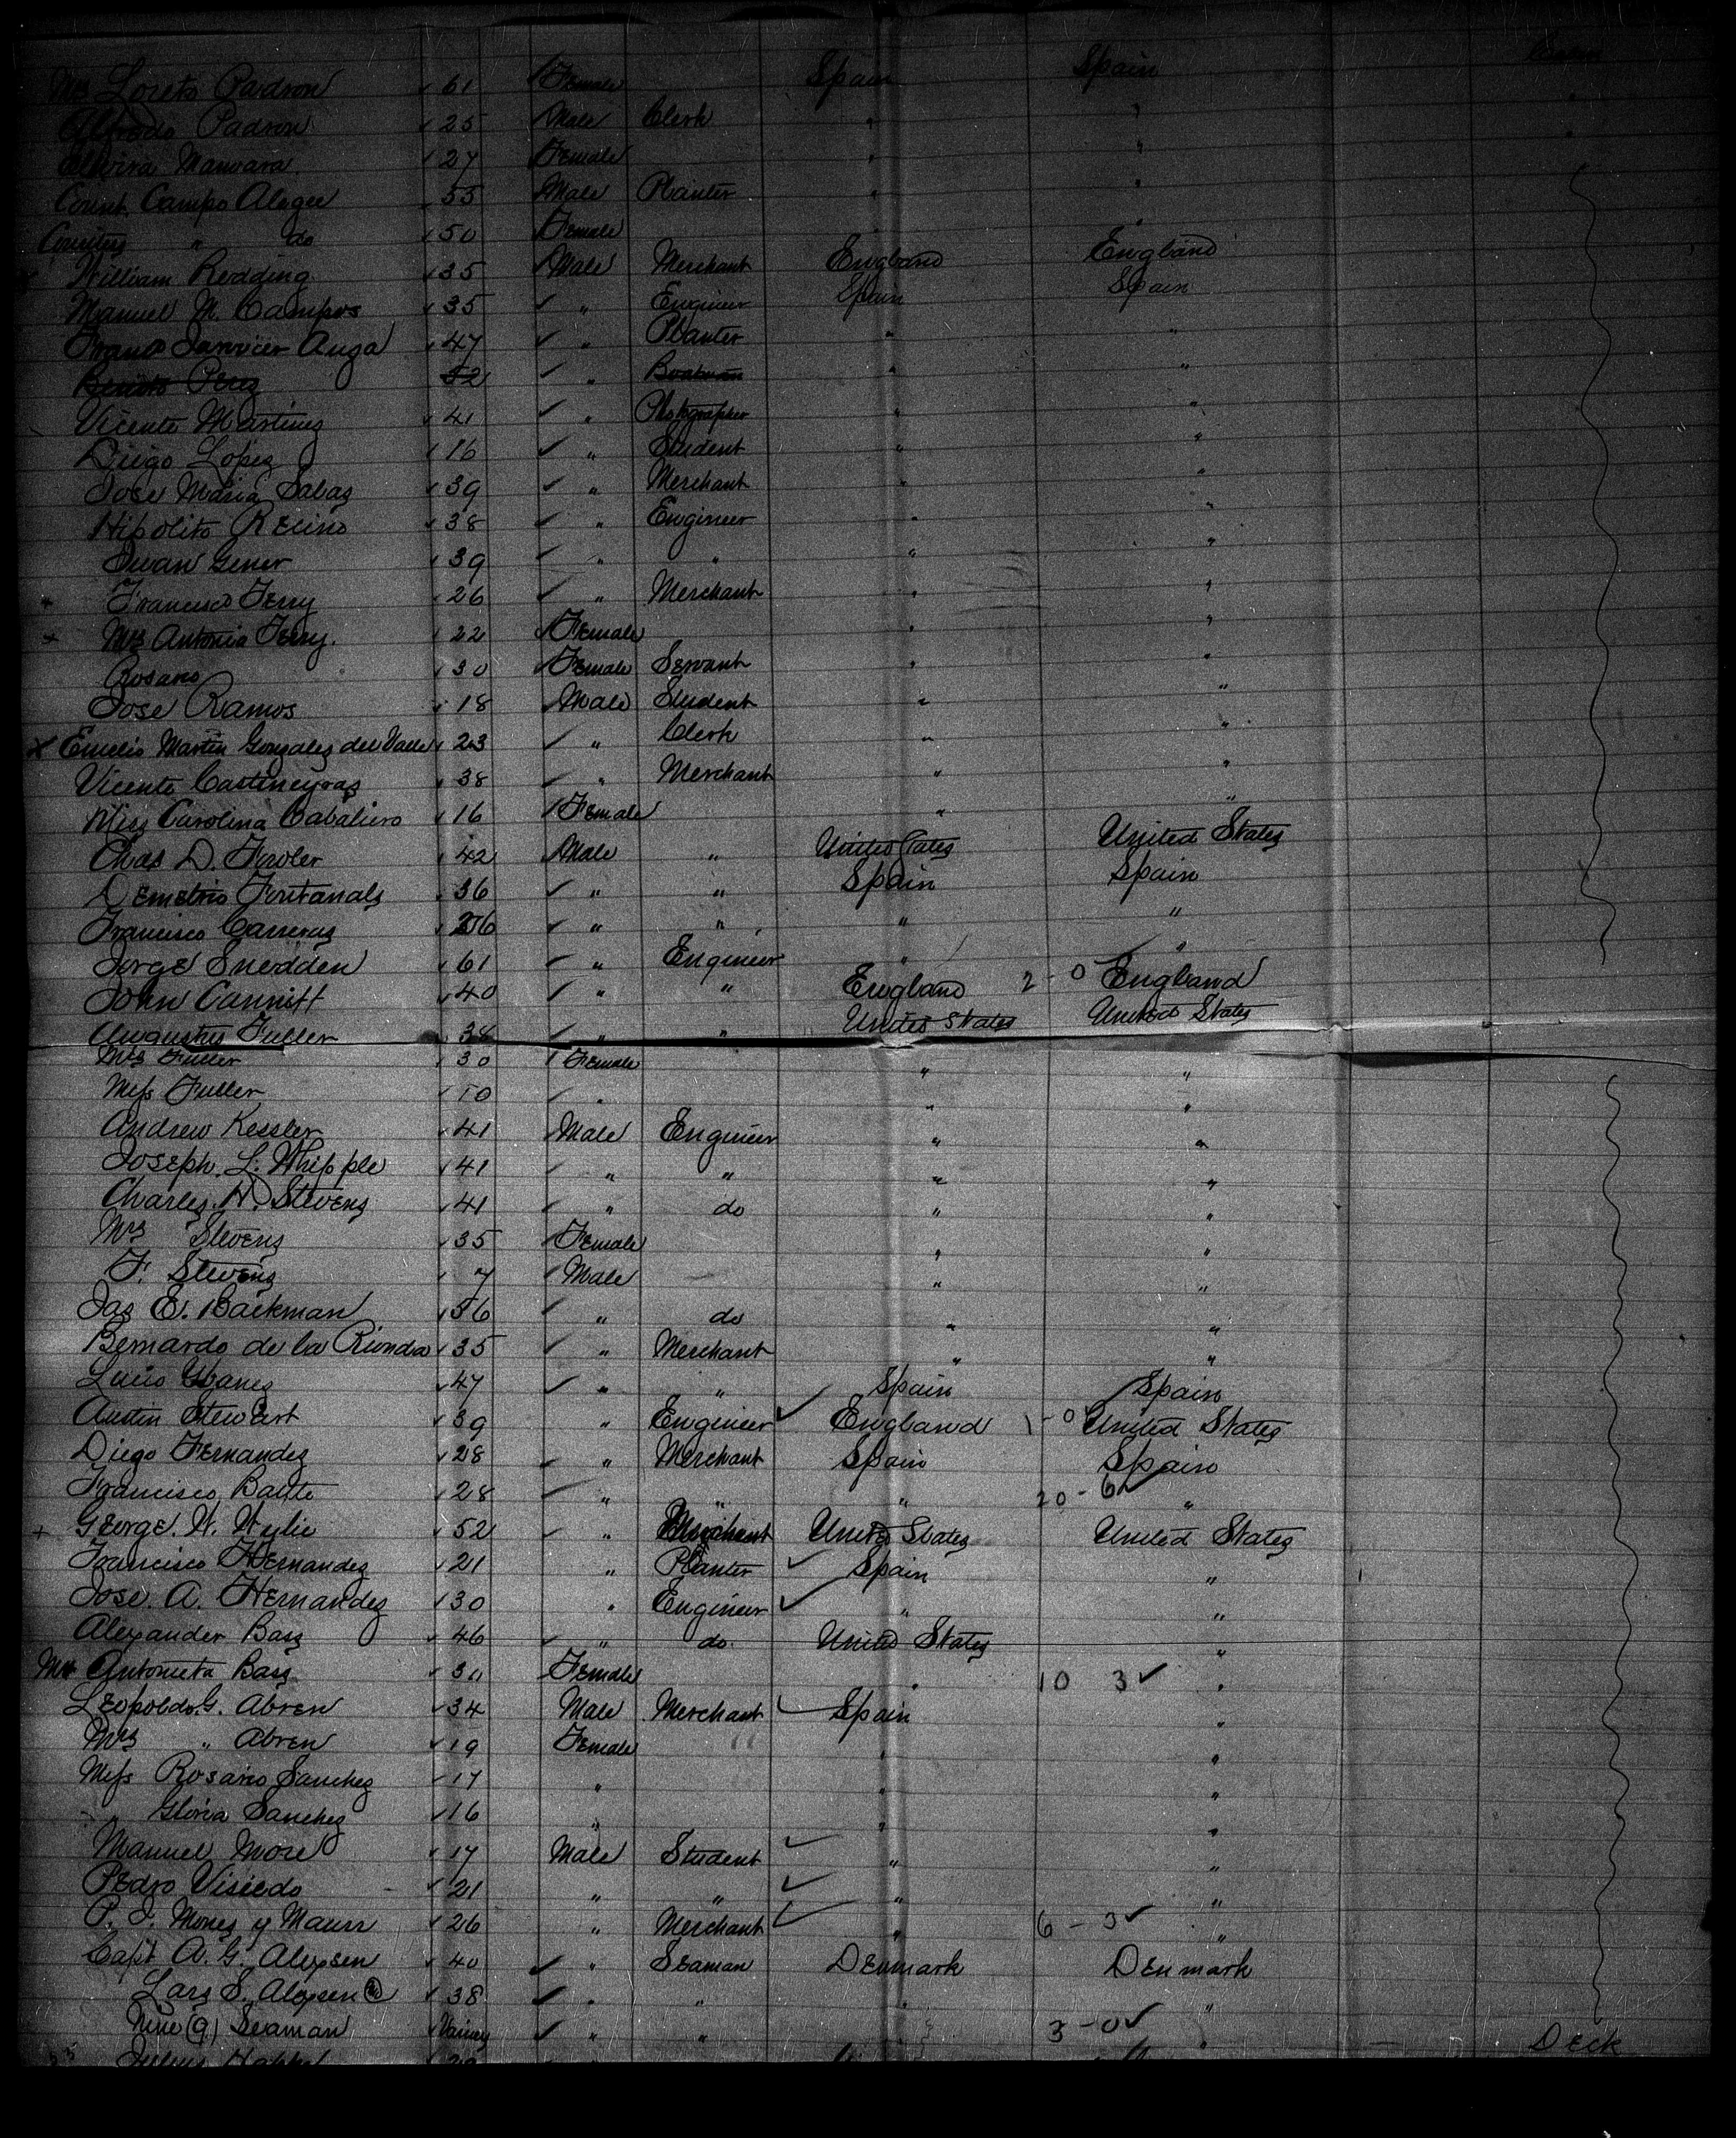 Mrs Loreto Padron 61 Female Spain Spain
Alfredo Padron 25 Male Clerk " "
Elvira 27 Female " "
Count Campo Alegre 55 Male Planter " "
Countess " do 50 Female " "
William Redding 35 Male Merchant England England
Manuel M. Campos 35 " Engineer Spain Spain
Janvier Auga 47 " Planter " "
Benito Perez 52 " Boatman " "
Vicente Martinez 41 " Photographer " "
Diego Lopez 16 " Student " "
Jose Maria Salas 39 " Merchant " "
Hipolito Recino 38 " Engineer " "
Juan Gener 39 " " " "
+ Francisco Terry 26 " Merchant " "
+ Mrs Antonia Terry. 22 Female " "
Rosario 30 Female Servant " "
Jose Ramos 18 Male Student " "
X Emelio Martin Gonzalez del Valle 23 " Clerk " "
Vicente Castineyras 38 " Merchant " "
Miss Carolina Cabaliero 16 Female " "
Chas D. Fowler 42 Male " United States United States
Demetrio Fontanals 36 " " Spain Spain
Francisco Carreras 26 " " " "
Jorge Snedden 61 " Engineer " "
John Canniff 40 " " England 2 - 0 England
Augustus Fuller 38 " " United States United States
Mrs Fuller 30 Female " "
Miss Fuller 10 " " "
Andrew Kessler 41 Male Engineer " "
Joseph L. Whipple 41 " " " "
Charles H. Stevens 41 " do " "
Mrs Stevens 35 Female " "
F. Stevens 7 Male " "
Jas E. Backman 36 " do " "
Bernardo de la Rionda 35 " Merchant " "
Lucio Ybanez 47 " " Spain Spain
Austin Stewart 39 " Engineer England 1 - 0 United States
Diego Fernandez 28 " Merchant Spain Spain
Francisco Batte 28 " " " 20 - 6 "
+ George. W. Wylie 52 " Merchant United States United States
Francisco Hernandez 21 " Planter Spain "
Jose. A. Hernandez 30 " Engineer " "
Alexander Bass 46 " do. United States "
Mrs Antonieta Bass 30 Female " 10 3 "
Leopoldo. G. Abren 34 Male Merchant Spain "
Mrs " Abren 19 Female " "
Miss Rosario Sanchez 17 " " "
" Gloria Sanchez 16 " " "
Manuel More 17 Male Student " "
Pedro Visiedo 21 " " " "
P. J. Mones y Maury 26 " Merchant " 6 - 3 "
Capt A. G. Alexsen 40 " Seaman Denmark Denmark
Lars S. Alexsen 38 " " " "
Nine (9) Seaman " " " 3 - 0 "
Deck